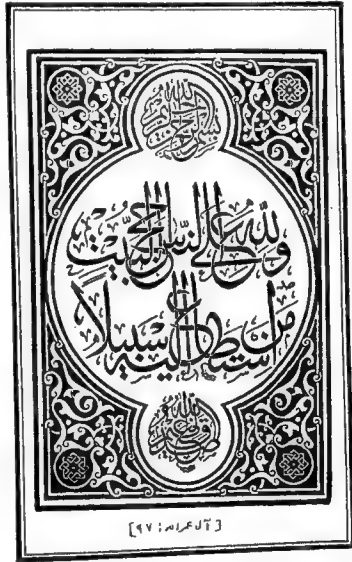 بسم الله الرحمن الرحيم
ولله على الناس حج البيت
من استطاع إليه سبيلا
صدق الله العظيم
[آل عمران: ٩٧]